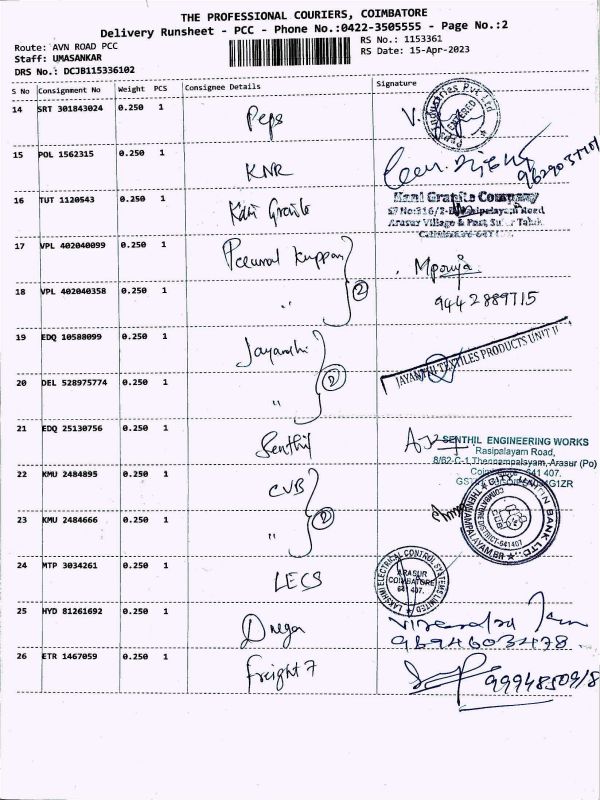 THE PROFESSIONAL COURIERS, COIMBATORE
Delivery Runsheet - PCC - Phone No.:0422-3505555 - Page No.:2
Route: AVN ROAD PCC
RS No.: 1153361
Staff: UMASANKAR
RS Date: 15-Apr-2023
DRS No.: DCJB115336102
S No Consignment No Weight PCS Consignee Details Signature
14 SRT 301843024 0.250 1 Peps
15 POL 1562315 0.250 1 KNR
16 TUT 1120543 0.250 1
Mani Granite Company
Arasur Village & Post, Sulur Taluk
17 VPL 402040099 0.250 1
18 VPL 402040358 0.250 1 " 2
9442889715
19 EDQ 10588099 0.250 1 Jayanthi
JAYANTHI TEXTILES PRODUCTS UNIT II
20 DEL 528975774 0.250 1 " 2
21 EDQ 25130756 0.250 1 Senthil
SENTHIL ENGINEERING WORKS
Rasipalayam Road,
8/82-C-1, Thennampalayam, Arasur (Po)
22 KMU 2484895 0.250 1 CUB
23 KMU 2484666 0.250 1 " 2
24 MTP 3034261 0.250 1 LECS
LAKSHMI ELECTRICAL CONTROL SYSTEMS LIMITED
ARASUR
COIMBATORE
641 407.
25 HYD 81261692 0.250 1
9694603478
26 ETR 1467059 0.250 1 Freight 7